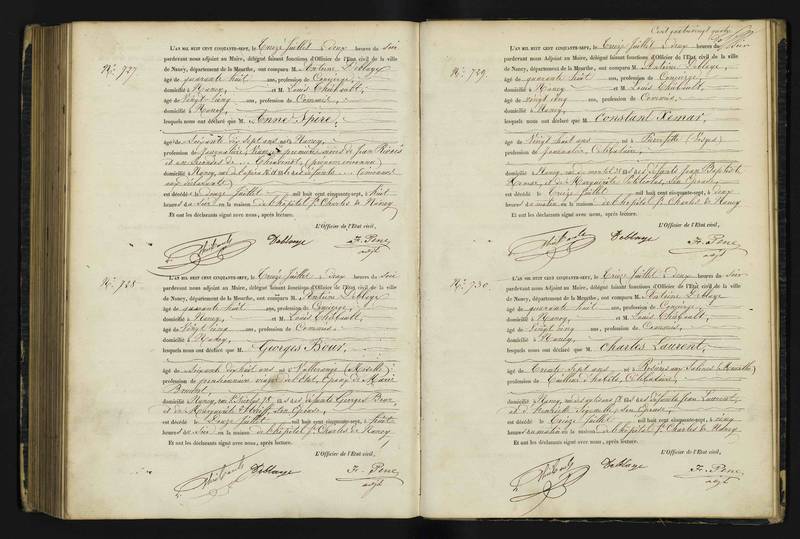 No. 727
L'AN MIL HUIT CENT CINQUANTE-SEPT, le Treize Juillet à deux heures du Soir
pardevant nous Adjoint au Maire, délégué faisant fonctions d'Officier de l'Etat civil de la ville
de Nancy, département de la Meurthe, ont comparu M. Antoine Deblaye
âgé de quarante huit ans, profession de Concierge,
domicilié à Nancy, et M. Louis Thibault,
âgé de Vingt cinq ans, profession de Commis,
domicilié à Nancy,
lesquels nous ont déclaré que M. Anne Spire,
âgé de Soixante dix sept ans né à Nancy,
profession de Journalière, Veuve en premières noces de Jean
et en Secondes de (prénom inconnu)
domicilié à Nancy, fille de défunts inconnus
aux déclarants
est décédé le douze Juillet mil huit cent cinquante-sept, à huit
heures du Soir en la maison de l'hôpital St. Charles de Nancy
Et ont les déclarants signé avec nous, après lecture.
L'Officier de l'Etat civil,
Thibault Deblaye Fr. Pène
adjt
No. 728
L'AN MIL HUIT CENT CINQUANTE-SEPT, le Treize Juillet à deux heures du Soir
pardevant nous Adjoint au Maire, délégué faisant fonctions d'Officier de l'Etat civil de la ville
de Nancy, département de la Meurthe, ont comparu M. Antoine Deblaye
âgé de quarante huit ans, profession de Concierge,
domicilié à Nancy, et M. Louis Thibault,
âgé de Vingt cinq ans, profession de Commis,
domicilié à Nancy,
lesquels nous ont déclaré que M. Georges Bour,
âgé de Soixante dix huit ans né à (Moselle)
profession de pensionnaire de l'Etat, Epoux de Marie
domicilié à Nancy, rue St. Nicolas 78, fils de défunts Georges Bour
et de Marguerite son Epouse
est décédé le Douze Juillet mil huit cent cinquante-sept, à huit
heures du Soir en la maison de l'hôpital St. Charles de Nancy
Et ont les déclarants signé avec nous, après lecture.
L'Officier de l'Etat civil,
Thibault Deblaye Fr. Pène
adjt
Cent quatrevingt
No. 729
L'AN MIL HUIT CENT CINQUANTE-SEPT, le Treize Juillet à deux heures du Soir
pardevant nous Adjoint au Maire, délégué faisant fonctions d'Officier de l'Etat civil de la ville
de Nancy, département de la Meurthe, ont comparu M. Antoine Deblaye
âgé de quarante huit ans, profession de Concierge,
domicilié à Nancy et M. Louis Thibault,
âgé de vingt cinq ans, profession de Commis,
domicilié à Nancy,
lesquels nous ont déclaré que M. Constant
âgé de Vingt huit ans né à (Vosges)
profession de Journalier, Célibataire,
domicilié à Nancy, fils de défunts Jean Baptiste
et de Marguerite son Epouse,
est décédé le Treize Juillet mil huit cent cinquante-sept, à deux
heures du matin en la maison de l'hôpital St. Charles de Nancy
Et ont les déclarants signé avec nous, après lecture.
L'Officier de l'Etat civil,
Thibault Deblaye Fr. Pène
adjt
No. 730
L'AN MIL HUIT CENT CINQUANTE-SEPT, le Treize Juillet à deux heures du Soir
pardevant nous Adjoint au Maire, délégué faisant fonctions d'Officier de l'Etat civil de la ville
de Nancy, département de la Meurthe, ont comparu M. Antoine Deblaye
âgé de quarante huit ans, profession de Concierge,
domicilié à Nancy, et M. Louis Thibault,
âgé de Vingt cinq ans, profession de Commis,
domicilié à Nancy,
lesquels nous ont déclaré que M. Charles Laurent,
âgé de Trente Sept ans né à Rosières aux Salines (Meurthe)
profession de Tailleur d'habits, Célibataire,
domicilié à Nancy, fils de défunts Jean Laurent
et d' son Epouse
est décédé le Treize Juillet mil huit cent cinquante-sept, à cinq
heures du matin en la maison de l'hôpital St. Charles de Nancy
Et ont les déclarants signé avec nous, après lecture.
L'Officier de l'Etat civil,
Thibault Deblaye Fr. Pène
adjt